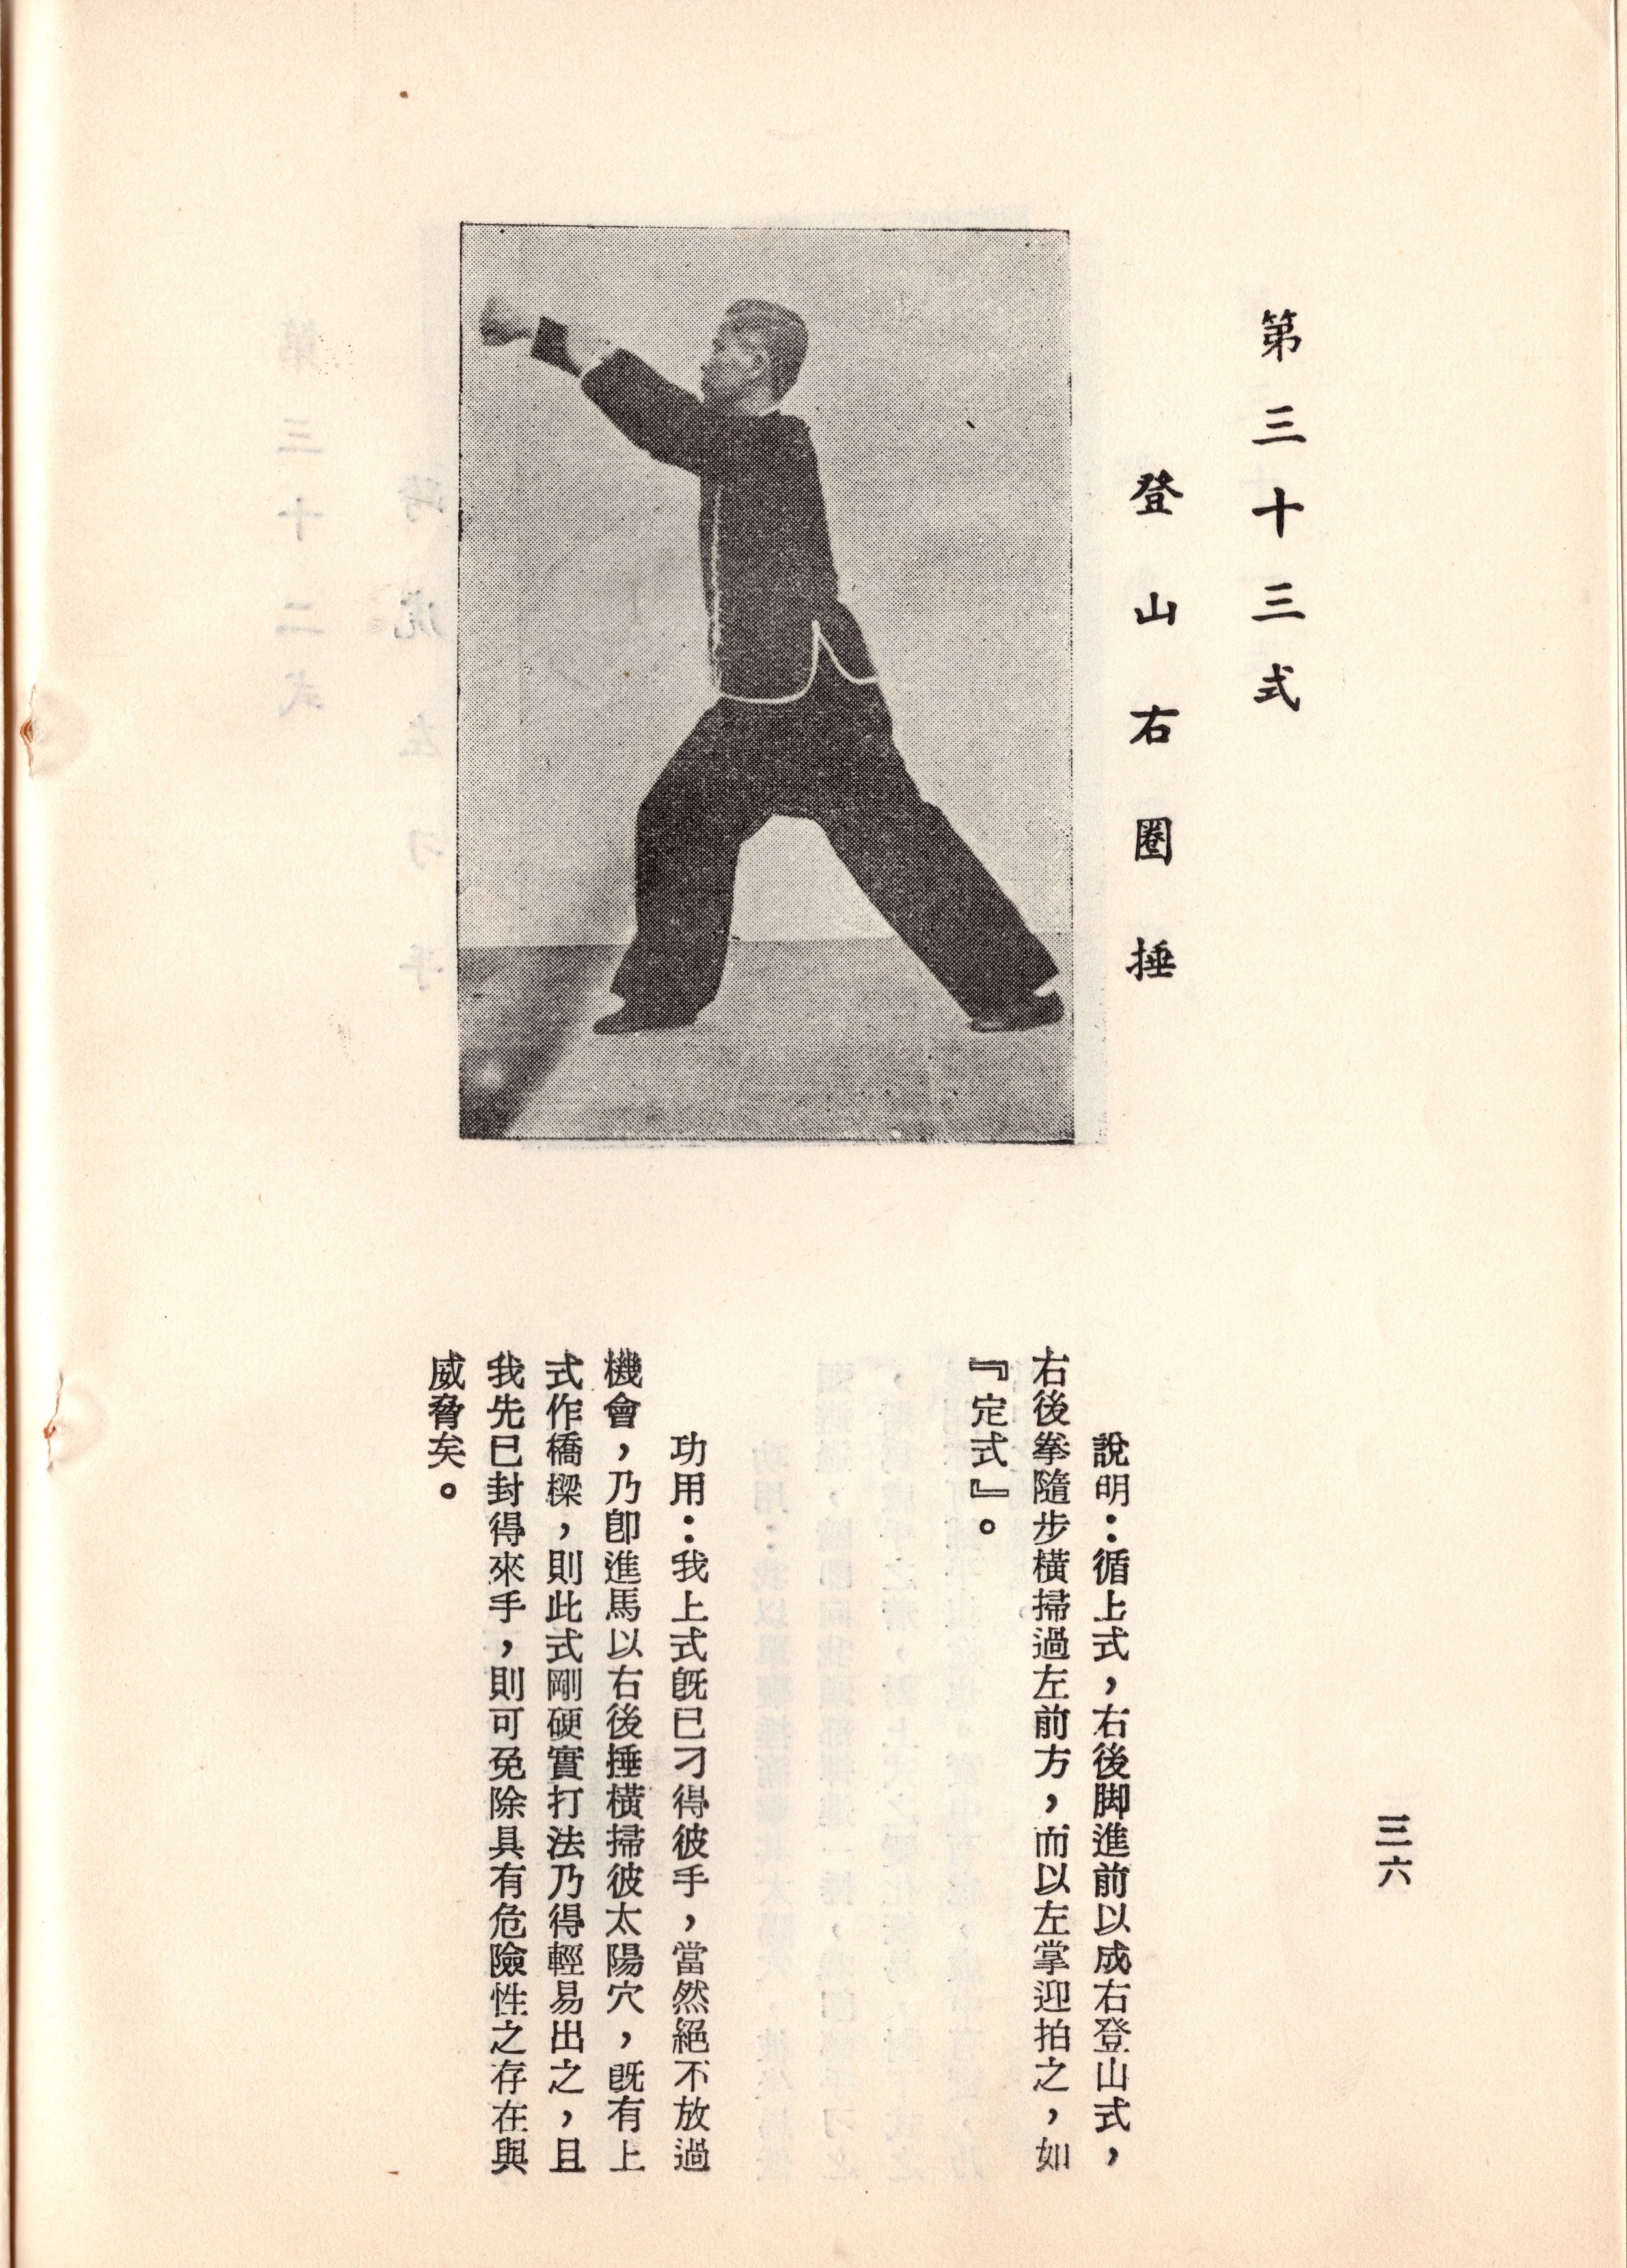 第三十三式
登山右圈捶
說明：循上式，右後脚進前以成右登山式，
右後拳隨步橫掃過左前方，而以左掌迎拍之，如
『定式』。
功用：我上式旣已刁得彼手，當然絕不放過
機會，乃卽進馬以右後捶橫掃彼太陽穴，旣有上
式作橋樑，則此式剛硬實打法乃得輕易出之，且
我先已封得來手，則可免除具有危險性之存在與
威脅矣。
三六